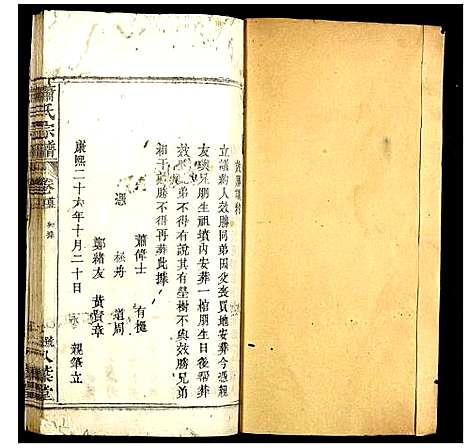 立議約人效勝同弟因父喪買地安葬今憑親
友議兄朋生頑墳內安葬一棺朋生日後幫葬
效勝弟不得有說其有塋樹不與效勝兄弟
相干效勝不得再葬此據
蕭偉士 有挺
憑 丞舟 道周
鄭緒友 黃賢章
康熙二十六年十月二十日 親筆立
蕭氏宗譜
卷首
八葉堂